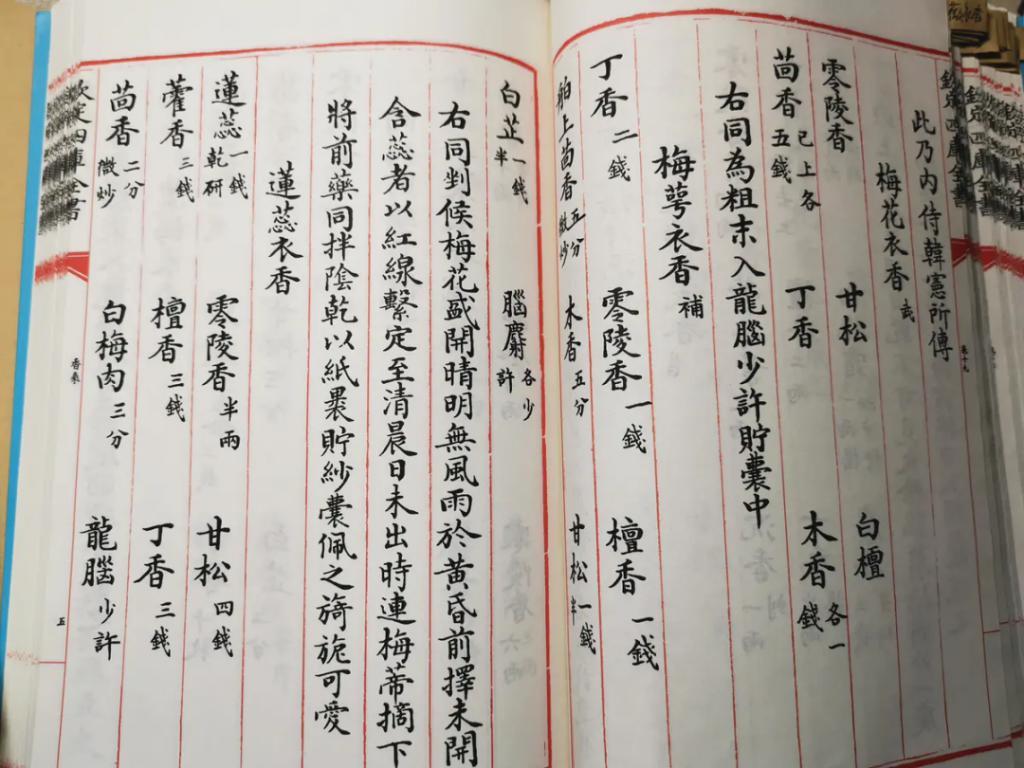 欽定四庫全書
卷十九
此乃内侍韓憲所傳
梅花衣香 武
零陵香 甘松 白檀
茴香 已上各五錢 丁香 木香 各一錢
右同為粗末入龍腦少許貯囊中
梅萼衣香 補
丁香 二錢 零陵香 一錢 檀香 一錢
舶上茴香 五分微炒 木香 五分 甘松 一錢半
白芷 一錢半 腦麝 各少許
右同剉候梅花盛開晴明無風雨於黃昏前擇未開
含蕊者以紅線繫定至清晨日未出時連梅蒂摘下
將前藥同拌陰乾以紙裹貯紗囊佩之旖旎可愛
蓮蕊衣香
蓮蕊 一錢乾研 零陵香 半兩 甘松 四錢
藿香 三錢 檀香 三錢 丁香 三錢
茴香 二分微炒 白梅肉 三分 龍腦 少許
欽定四庫全書
香乘
五